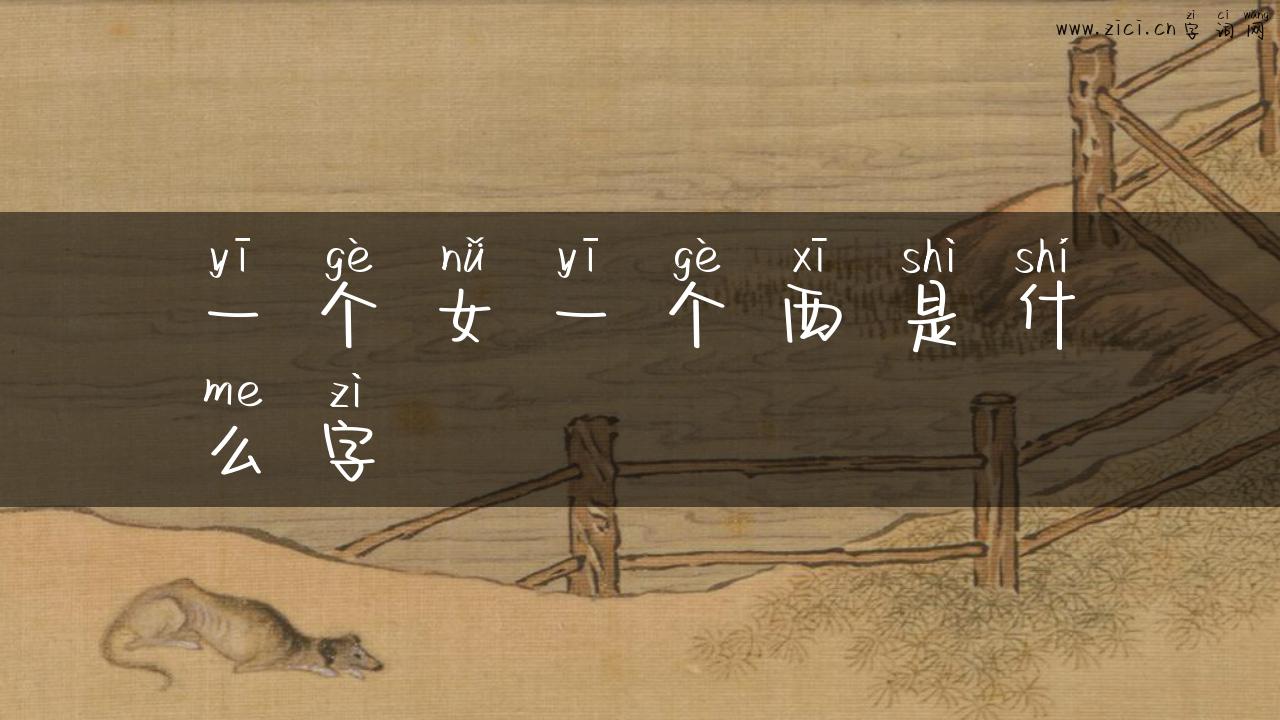 zi ci wang
www.zici.cn 字词网
yī gè nǚ yī gè xī shì shí
一个女一个西是什
me zì
么字